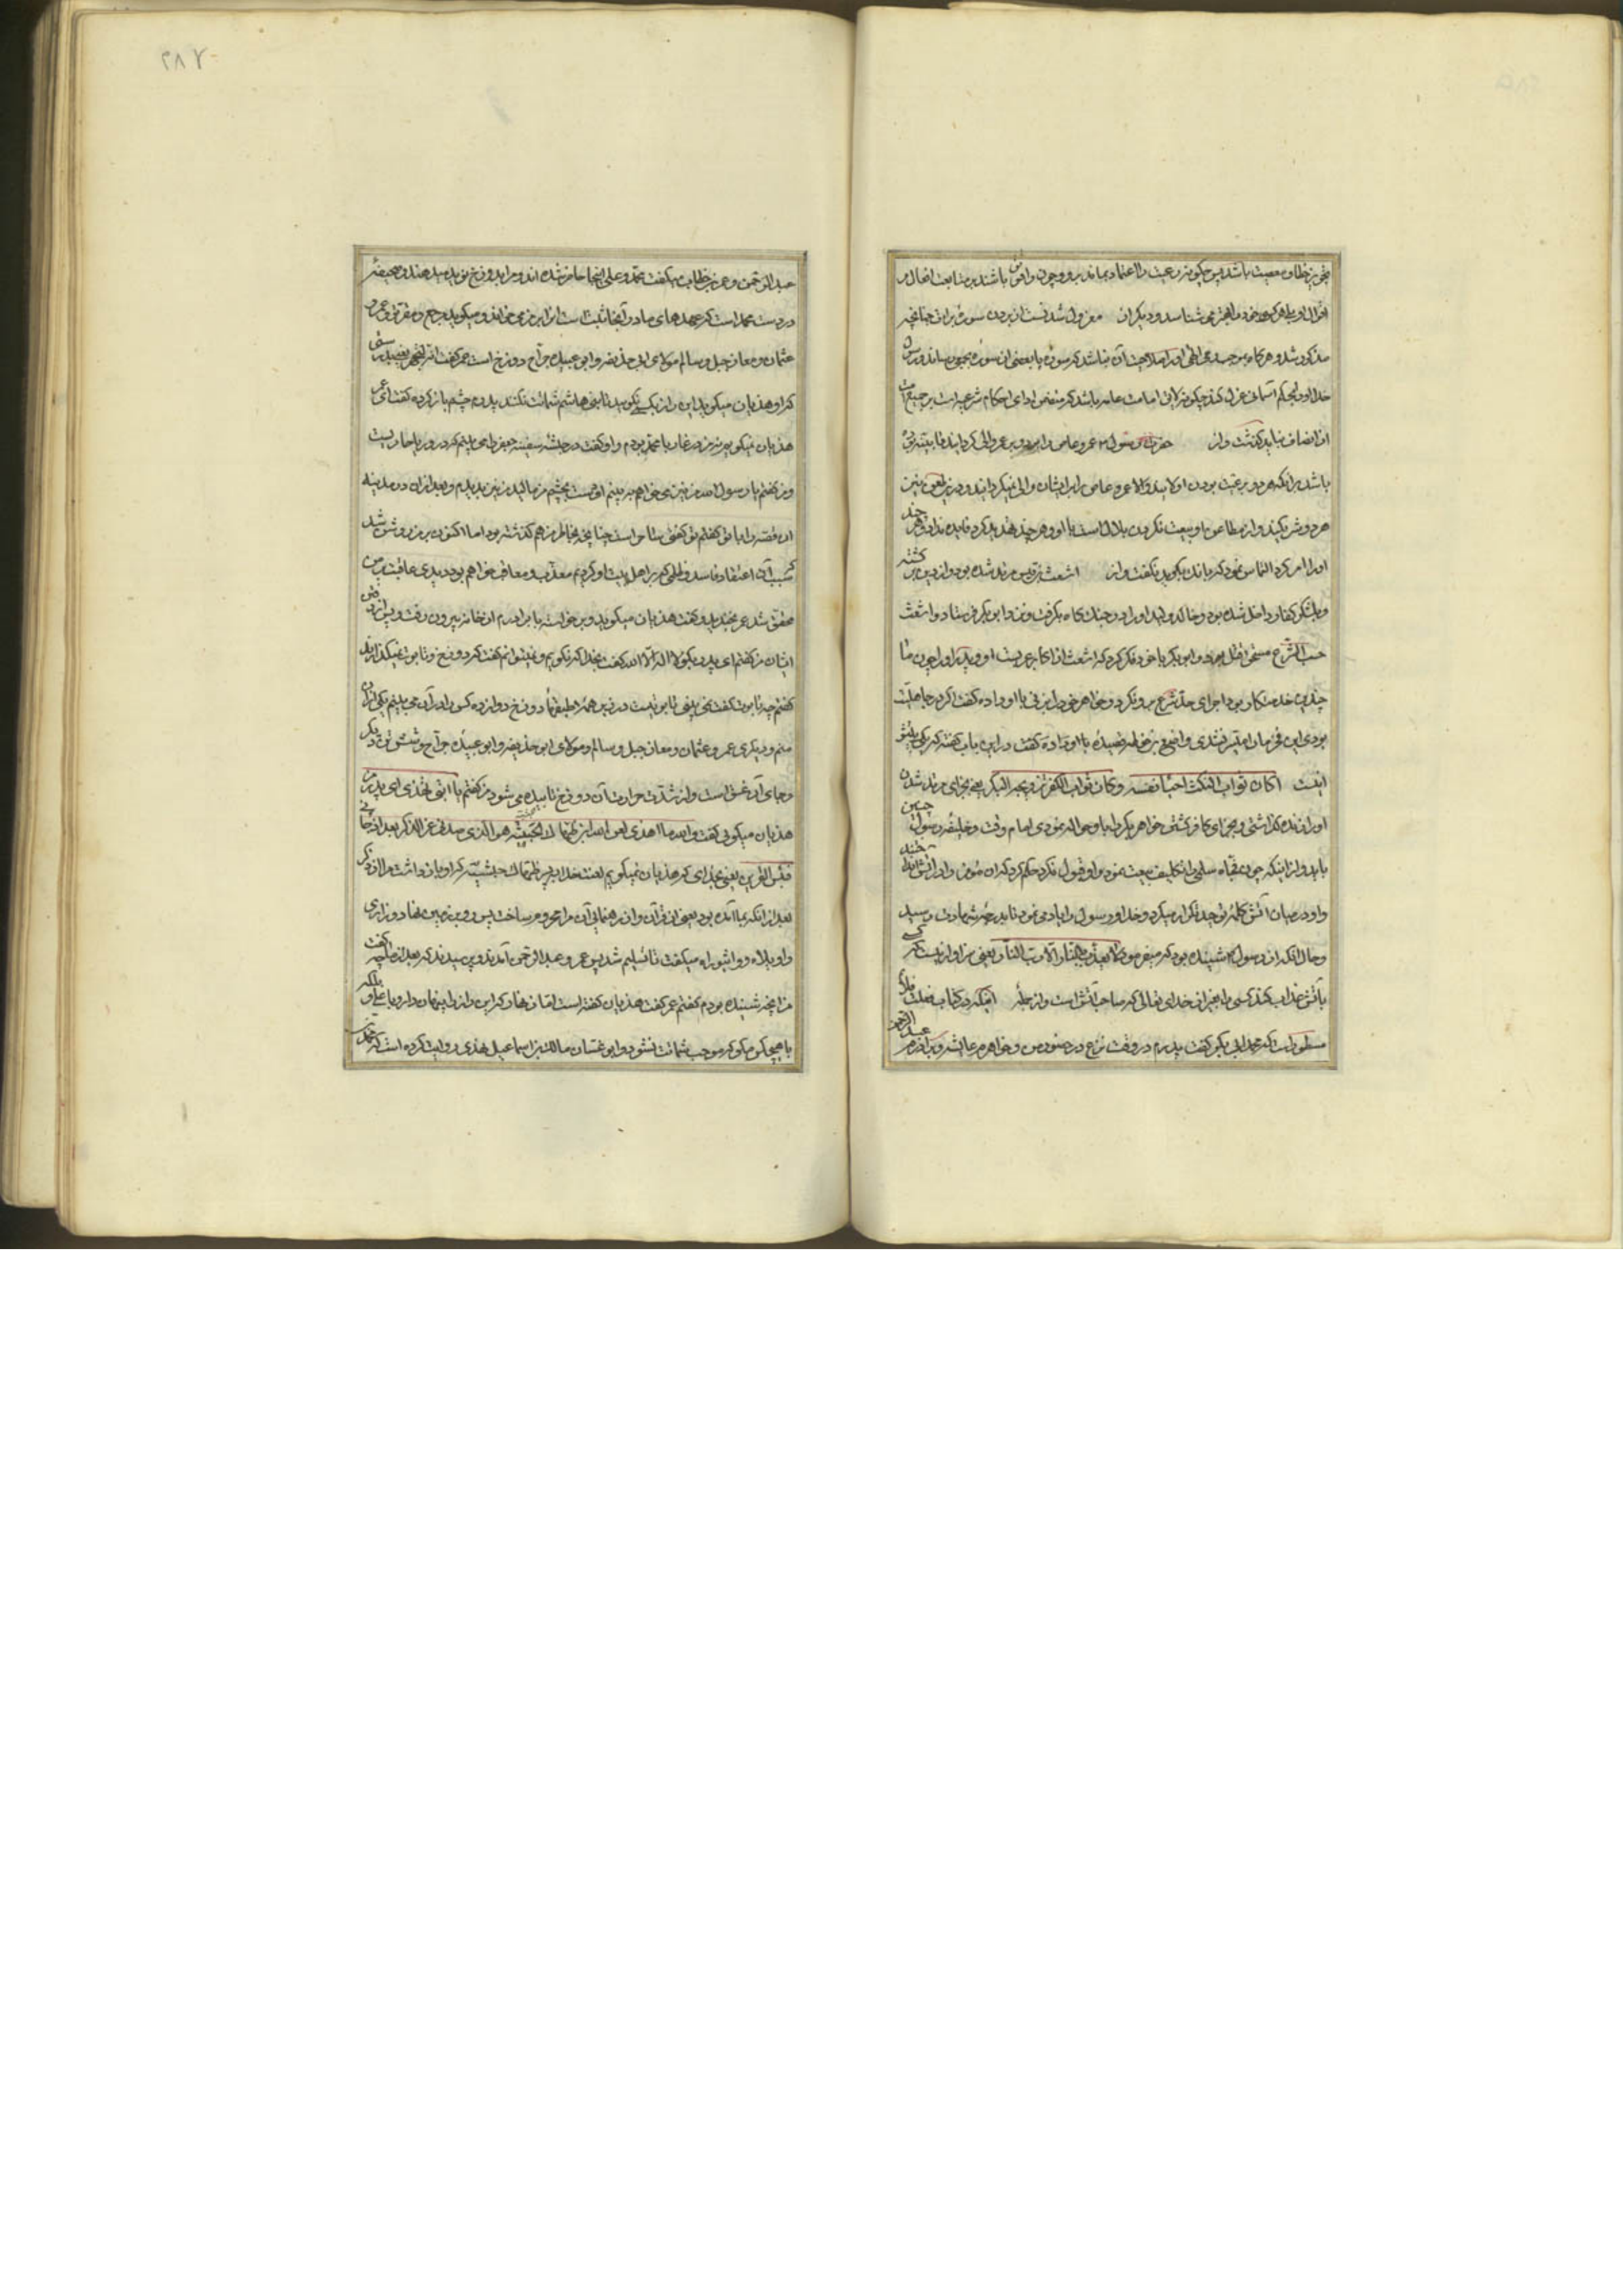 تجویز خطا و معصیت باشد پس چگونه رعیت را اعتماد بماند برو و چون واثق باشند بر متابعت افعال و
اقوال او بلکه هرکه خود را بهتر می شناسد و دیگران معزول شدنست از بردن سوره برات چنانچه
مذکور شد و هرگاه بموجب وحی الهی او را صلاحیت آن نباشد که سوره یا بعضی از سوره بجمعی رساند و رسول
خدا او را بحکم آسمانی عزل کند چگونه لایق امامت عامه باشد که متضمن ادای احکام شرعیه است بر جمیع امت
از انصاف نباید گذشت و از حضرت رسول عمرو عاص را برو و بر عمر والی گردانید
باشد برآنکه هر دو رعیت بودن اولایند والا عمرو عاص را بر ایشان والی نمیگردانید و در
هر دو شریکند و از مطاعن او بیعت نکردن بلال است با او و هر چند تهدید کرد فایده نداد و هر چند
او را امر کرد التماس نمود که بانک بگوید نگفت و از اشعث بن قیس مرتد شده بود و از دین برگشته
و بلشکر کفار داخل شده بود و خالد ولید او را در جنگ گاه بگرفت و نزد ابو بکر فرستاد و اشعث
حسب الشرع مستحق قتل بود و ابو بکر با خود فکر کرد که اشعث از اکابر عربست او و پدر او را چون ما
چندین خدمتکار بود اجرای حد شرع برو نکرد و خواهر خود را بزنی باو داده گفت اگر در جاهلیت
بودی این فرمان میسر نشدی و اضبع بن حرمله قصیده باو داده گفت در این باب گفته که یکی بیتش
اینست اکان ثواب النکث احیاء نفسه و کان ثواب الکفر تزویجه البکر یعنی بجزای مرتد شدن
او را زنده گذاشتی و بجزای کافر گشتن خواهر بکر را باو حواله نمودی امام وقت و خلیفه رسول چنین
باید و از اینکه چون فجاه سلمی را تکلیف بیعت نمود و او قبول نکرد حکم کرد که آتش افروزند و او را در آتش انداختند
و او در میان آتش کلمه توحید تکرار میکرد و خدا و رسول را یاد می نمود تا بدرجه شهادت رسید
و حال آنکه از رسول شنیده بود که میفرمود لا یعذب بالنار الا رب النار یعنی سزاوار نیست که کسی
بآتش عذاب کند کسی را بغیر از خدای تعالی که صاحب آتش است و از جمله اینکه در کتاب فعلت فلا تلم
مسطور است که محمد ابی بکر گفت پدرم در وقت نزع در حضور من و خواهرم عایشه و برادرم عبد الرحمن
عبد الرحمن و عمر بن خطاب میگفت محمد و علی اینجا حاضر شده اند و مرا بدوزخ نوید میدهند و صحیفه
در دست محمد است که عهدهای ما در آنجا ثبت است از برای من می خواند و میگوید جمع و متفرق و عمر و
عثمان و معاذ جبل و سالم مولای ابی حذیفه و ابو عبیده جراح دوزخ است عمر گفت
که او هذیان میگوید این راز بکسی نگویید تا بنی هاشم شماتت نکنند پدرم چشم باز کرده گفت ای عمر
هذیان نمیگویم نه من در غار با محمد بودم و او گفت در حبشه سفینه جعفر را می بینم که در دریا جاریست
و من گفتم یا رسول الله من نیز می خواهم ببینم او دست بچشم من مالید من نیز بدیدم و بعد از آن در مدینه
این قصه را با تو گفتم تو گفتی ساحر است چنانچه بخاطر من هم گذشته بود اما اکنون بر من روشن شد
که سبب آن اعتقاد فاسد و ظلمی که بر اهل بیت او کردیم معذب و معاقب خواهم بود دیدی عاقبت بر من
محقق شد عمر بخندید و گفت هذیان میگوید و برخواست با برادرم از خانه بیرون رفت و پس از رفتن
ایشان من گفتم ای پدر بگو لا اله الا الله گفت بخدا که نگویم و نمیتوانم گفت که در دوزخ و تابوت نمیگذارند
گفتم چه تابوت گفت نمی بینی تابوتیست در زیر همه طبقهاء دوزخ دوازده کس را در آن می بینم یکی از آن
منم و دیگری عمر و عثمان و معاذ جبل و سالم مولای ابی حذیفه و ابو عبیده جراح و شش تن دیگر
و جای آن عمق است و از شدت حرارت آن دوزخ تابیده می شود من گفتم یا ابتی تهذی ای پدر من
هذیان میگوئی گفت والله ما اهذی لعن الله ابن ضهاک الحبشیة هو الذی صدنی عن الذکر بعد اذ جائنی
فبئس القرین یعنی بخدای که هذیان نمیگویم لعنت خدا بر پسر ضهاک حبشیه که او باز داشت مرا از ذکر
بعد از آنکه بما آمده بود یعنی از قرآن و از رهنمائی آن مرا محروم ساخت پس روی بزمین نهاد و زاری
واویلاه وواثبوراه میگفت تا تسلیم شد پس عمر و عبد الرحمن آمدند و پرسیدند که بعد از ما چه گفت
من آنچه شنیده بودم گفتم عمر گفت هذیان گفته است اما زنهار که این راز را پنهان دار و با علی بلکه
با هیچکس مگو که موجب شماتت نشود و ابو غسان مالک بن اسماعیل نهدی روایت کرده است که محمد
٢٨٢